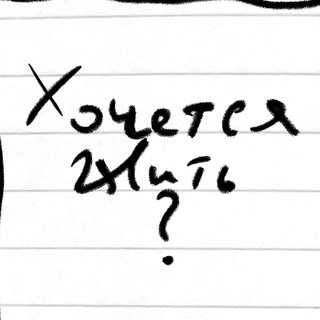 Хочется
жить
?